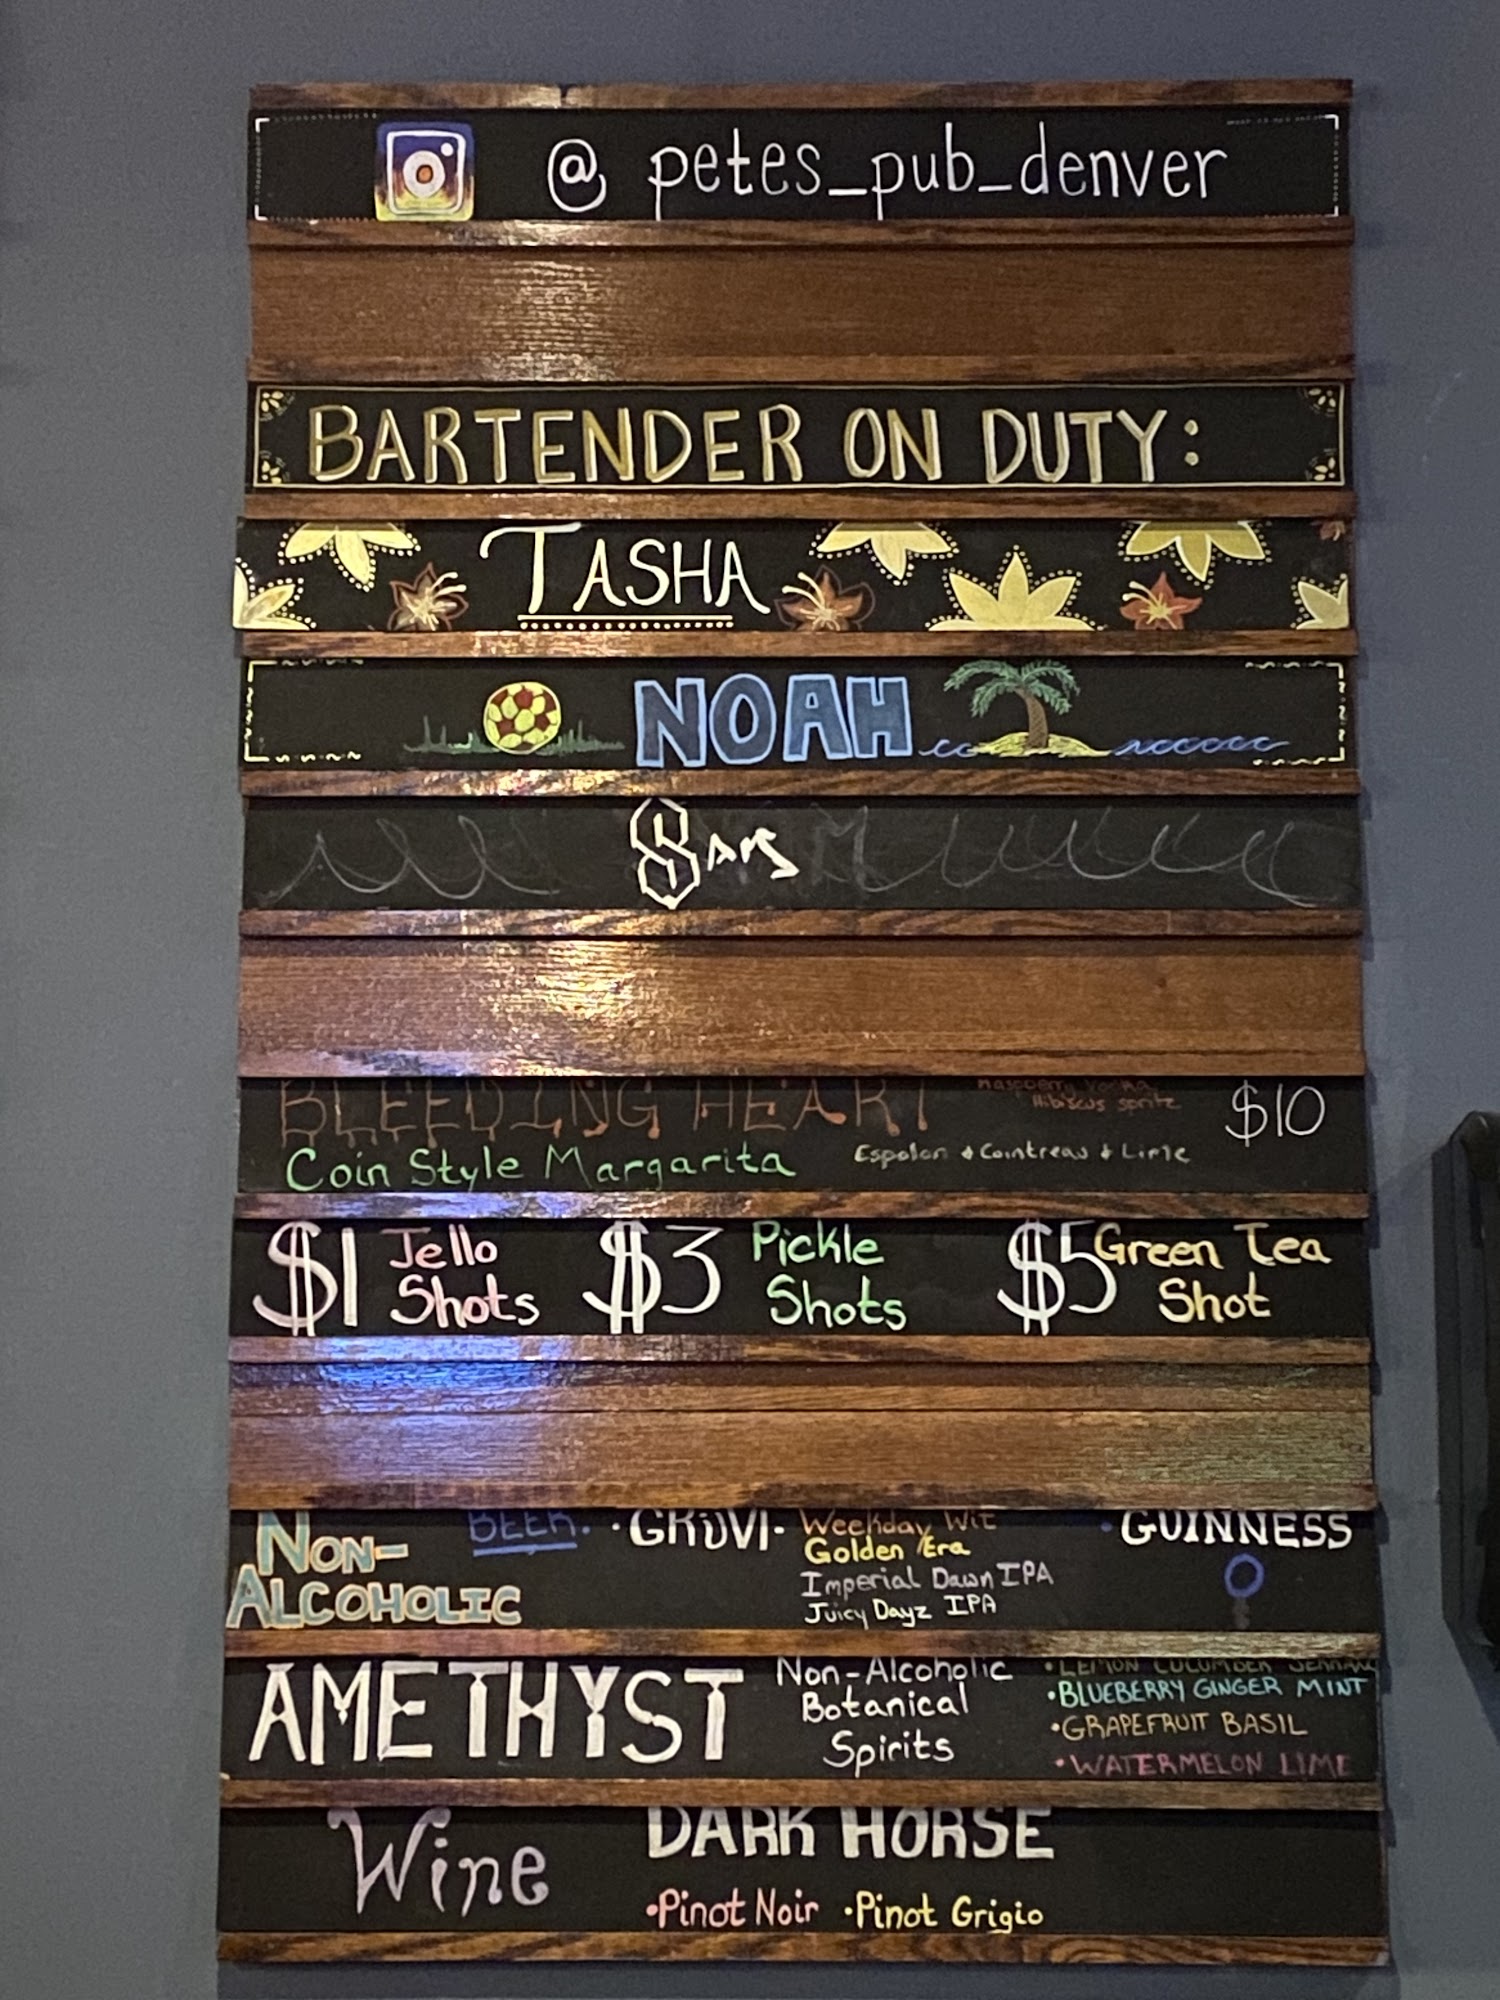 @ petes_pub_denver
BARTENDER ON DUTY:
TASHA
NOAH
BLEEDING HEART
Raspberry Vodka,
Hibiscus spritz
$10
Coin Style Margarita
Espolon + Cointreau + Lime
$1 Jello Shots
$3 Pickle Shots
$5 Green Tea Shot
NON-ALCOHOLIC
BEER:
• GRUVI -
Weekday Wit
Golden Era
Imperial Dawn IPA
Juicy Dayz IPA
• GUINNESS
0
AMETHYST
Non-Alcoholic
Botanical
Spirits
• LEMON CUCUMBER SERRANO
• BLUEBERRY GINGER MINT
• GRAPEFRUIT BASIL
• WATERMELON LIME
Wine
DARK HORSE
• Pinot Noir • Pinot Grigio